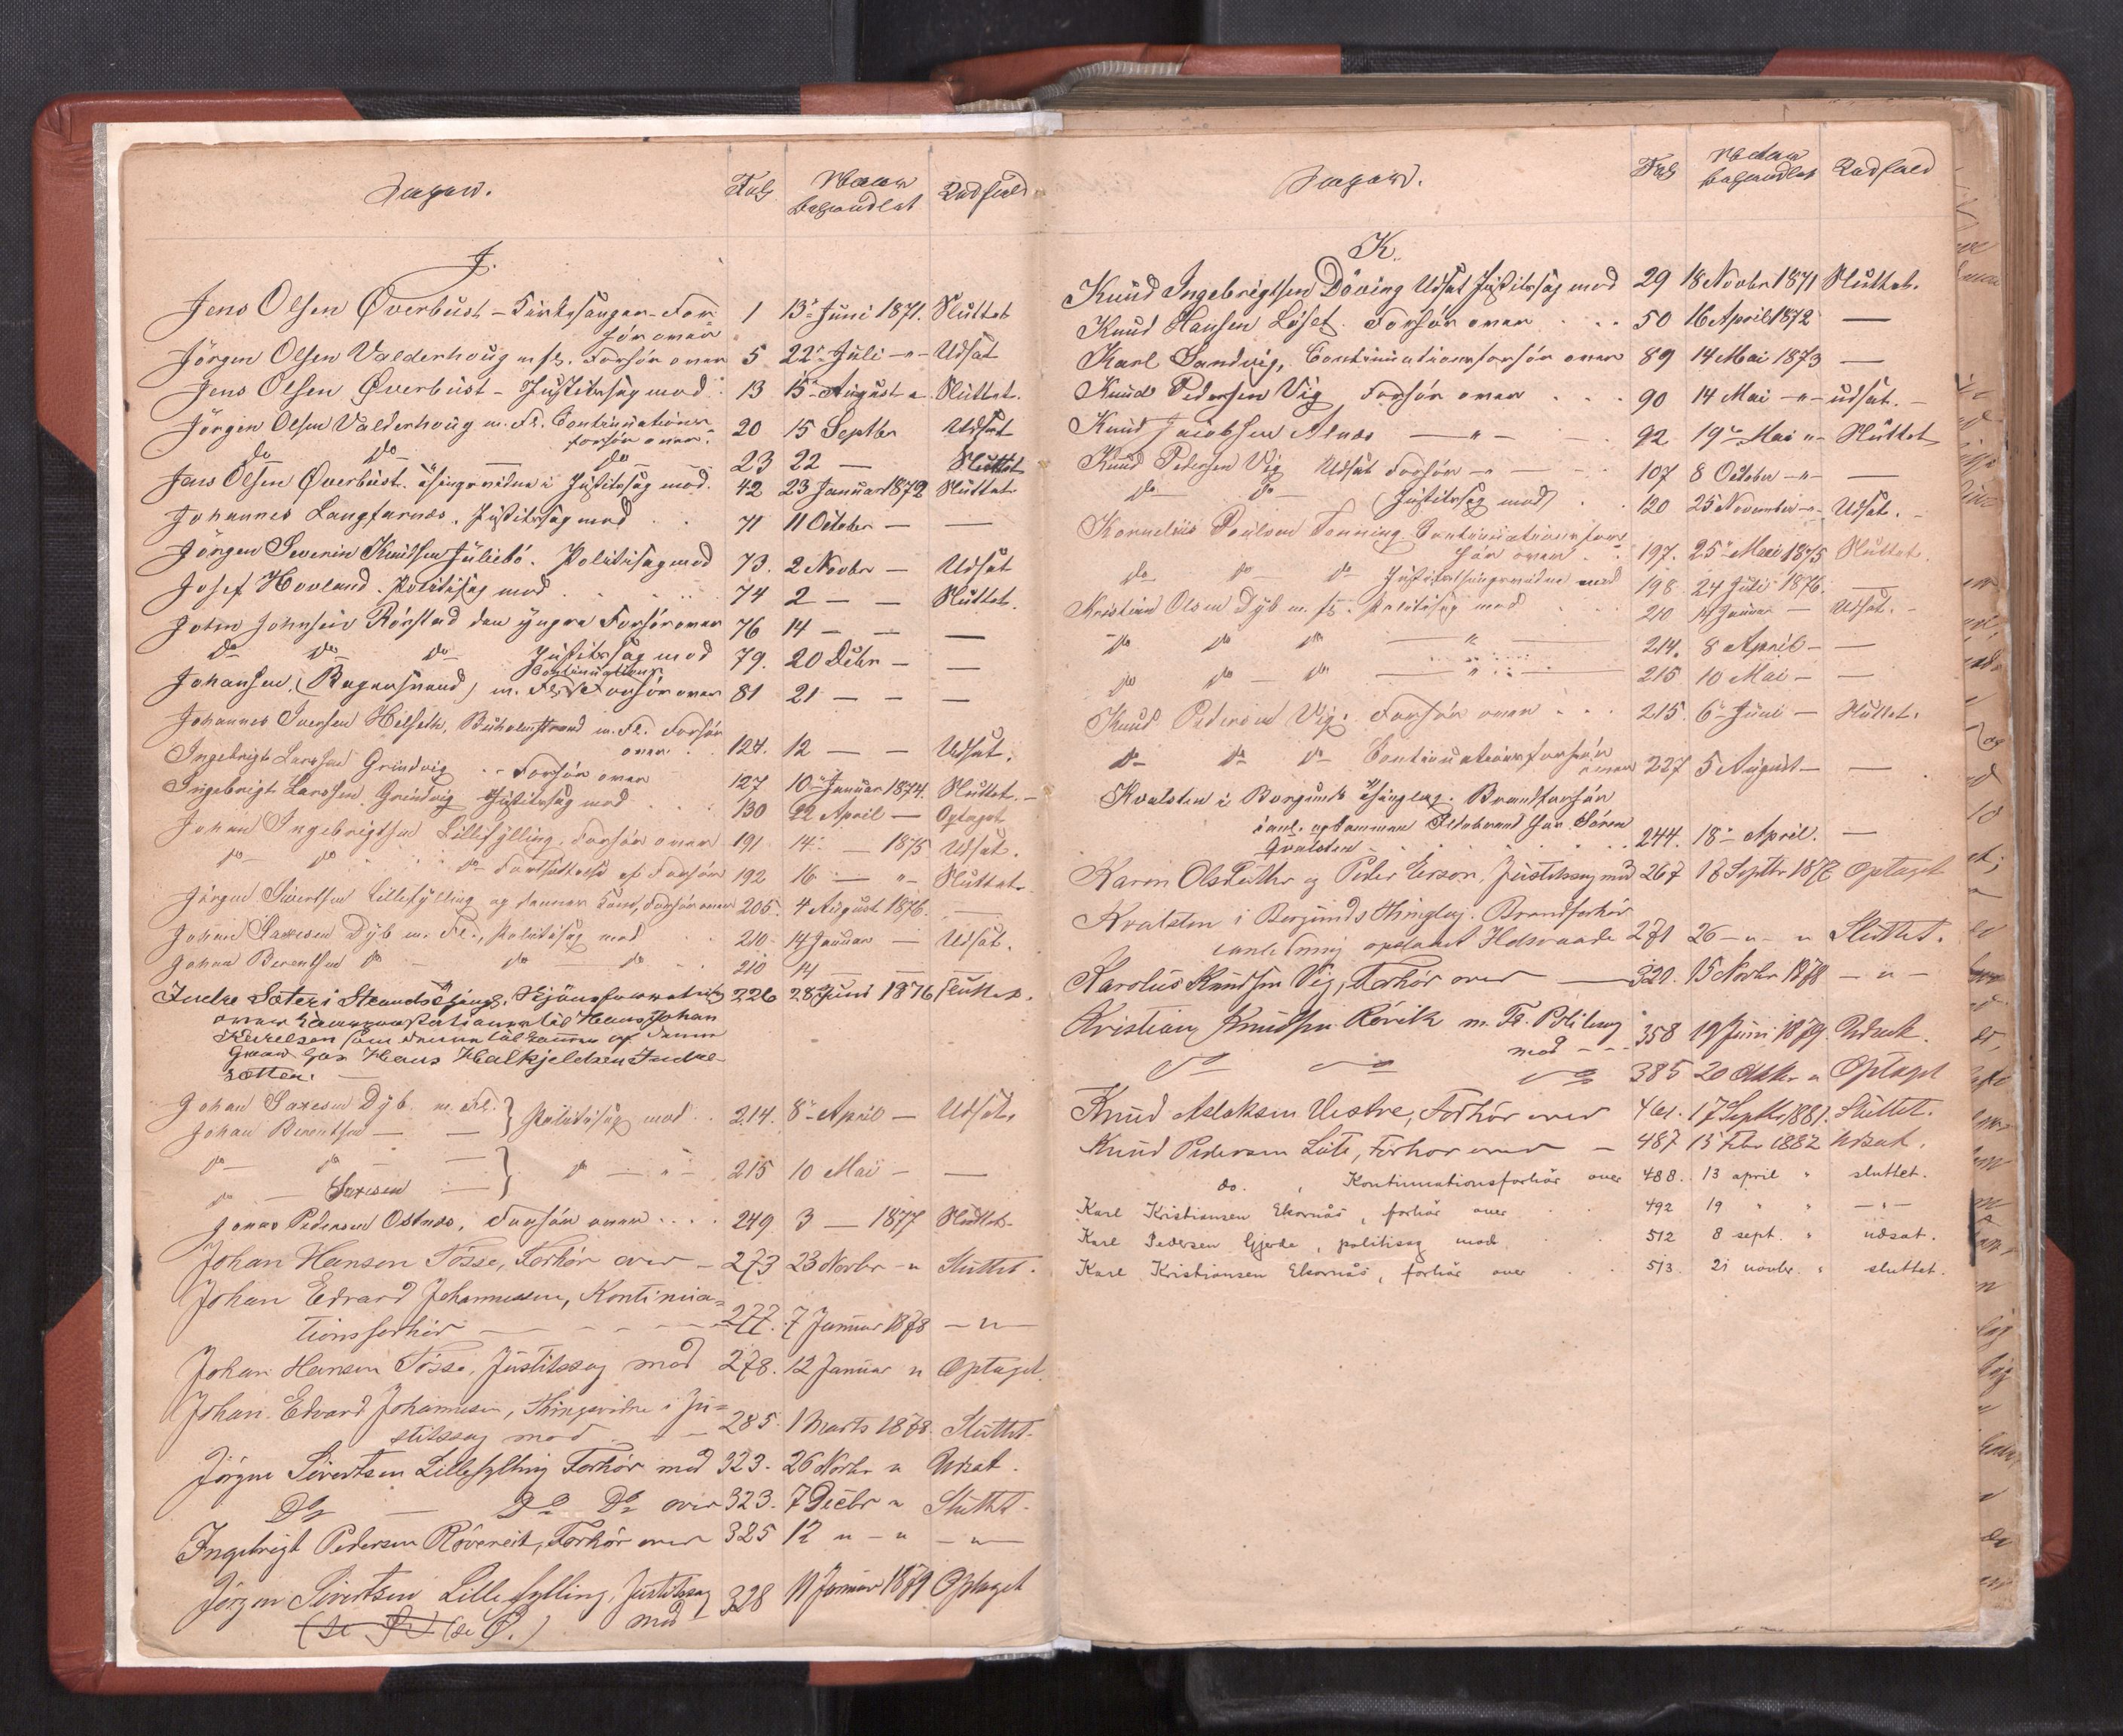 Sagen. Fol. Naar behandlet Udfald
J.
Jens Olsen Överbust - Forhör over 1 13de Juni 1871. Sluttet
Jörgen Olsen Valderhoug m. fl. Forhör over 5 22de Juli -"- Udsat
Jens Olsen Överbust - Justitssag mod 13 15de August -"- Sluttet.
Jörgen Olsen Valderhoug m. Fl. Continuations-
forhör over. 20 15 Septbr Udsat
do do do 23 22 — Sluttet
Jens Olsen Överbust. Thingsvidne i Justitssag mod. 42 23 Januar 1872 Sluttet
Johannes Langfarnæs. Justitssag mod 71 11 October — —
Jörgen Severin Knudsen Juliebö. Politisag mod 73. 2 Novbr — Udsat
Josef Hovland. Politisag mod 74 2 — — Sluttet.
John Johnsen Rörstad den yngre Forhör over 76 14 — — —
do do do Justitssag mod 79. 20 Debr — —
Johansen, m. Fl. Continuations Forhör over 81 21 — — —
Johannes Iversen Hilseth, m. Fl. Forhör
over 124. 12 — — Udsat.
Ingebrigt Larssen Grindvig - Forhör over 127 10de Januar 1874. Sluttet. -
Ingebrigt Larssen Grindvig Justitssag mod 130 22 April — Optaget
Johan Ingebrigtsen Lillesylling. Forhör over 191 14 — 1875 Udsat.
do do do Fortsættelse af Forhör 192 16 — " Sluttet.
Jörgen Sivertsen Lillesylling og dennes Forhör over 205. 4 August 1876. —
Johan Saxesen Dyb m. Fl., Politisag mod 210 14 Januar — Udsat.
Johan Berentsen do do do 210 14 — — —
Indre Sæter i Strands Thinglag. 226 28 Juni 1876 Sluttet.
til Hans Johan
Hans Halkjeldsen Indre-
sætter.
Johan Saxesen Dyb m. Fl. } Politisag mod 214. 8de April — Udsat.
Johan Berentsen — —
do do — } do — " — 215 10 Mai — —
do — Saxesen —
Jonas Pedersen Ostnes, Forhör over 249 3 — 1877 Sluttet.
Johan Hansen Fösse, Forhör over — 273 23 Novbr — " Sluttet.
Johan Edvard Johannessen, Kontinua=
tionsforhör — 277. 7 Januar 1878 — " —
Johan Hansen Fösse, Justitssag mod 278. 12 Januar " Optaget.
Johan Edvard Johannesen, Thingsvidne i Ju=
stitssag mod — 285. 1 Marts 1878. Sluttet.
Jörgen Sivertsen Lillesylling Forhör mod 323. 26 Novbr " Udsat.
Do — Do Do over 323. 7 Decbr " Sluttet.
Ingebrigt Pedersen Rövereit, Forhör over 325 12 " - " — " —
Jörgen Sivertsen Lillesylling, Justitssag
mod 328 11 Januar 1879 Optaget
(se Ø.)
Sagen. Fol. Naar behandlet Udfald
K.
Knud Ingebrigtsen Döving Udsat Justitssag mod 29 18 Novbr 1871 Sluttet.
Knud Hansen Löset. Forhör over 50 16 April 1872 —
Karl Sandvig, Continuationsforhör over 89 14 Mai 1873 —
Knud Pedersen Vig Forhör over 90 14 Mai -"- udsat. -
Knud Jacobsen Alnæs — " — 92 19de Mai " Sluttet
Knud Pedersen Vig Udsat Forhör -"- 107 8 October -"- —
do do (Justitssag mod) 120 25 November -"- Udsat. -
Kornelius Poulsen Fonning. Continuationsfor-
hör over 197. 25de Mai 1875 Sluttet.
do do do Justitsthingsvidne mod 198. 24 Juli 1876. —
Kristian Olsen Dyb m. fl. Politisag mod 210 14 Januar — Udsat. -
do do do — " — 214. 8 April — —
do do do — " — 215 10 Mai — —
Knud Pedersen Vig. Forhör over 215. 6de Juni — Sluttet.
do do do Continuationsforhör
over 227 5 August — —
Kvalsten i Borgunds Thinglag. Brandforhör
Ildebrand hos Sören
Qvalsten 244. 18de April. —
Karen Olsdatter og Peder Erson, Justitssag mod 267 18 Septbr 1877 Optaget
Kvalsten i Borgunds Thinglag. Brandforhör
i anledning opstaaet Ildsvaade 271 26 - " - " Sluttet.
Karolus Knudsen Vig, Forhör over — 320. 15 Novbr 1878 — " —
Kristian Knudsen Rövik m. Fl. Politisag
mod — 358 19 Juni 1879. Udsat.
do do do 385 20 Oktbr " Optaget
Knud Aslaksen Vestre, Forhör over 461. 17 Septbr 1881. Sluttet.
Knud Pedersen Liite, Forhör over — 487 13 Febr 1882 Udsat.
do. , Kontinuationsforhör over 488. 13 april " sluttet.
Karl Kristiansen Ekornås, forhör over 492 19 " " — " —
Karl Pedersen Gjerde, politisag mod 512 8 sept. " udsat.
Karl Kristiansen Ekornås, forhör over 513. 21 novbr. " sluttet.